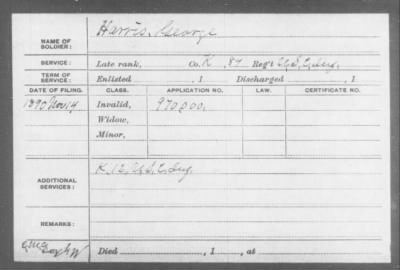 NAME OF SOLDIER: Harris, George
SERVICE: Late rank, Co. K, 87 Reg't U.S.C. Inf.
TERM OF SERVICE: Enlisted , 1 Discharged , 1
DATE OF FILING. CLASS. APPLICATION NO. LAW. CERTIFICATE NO.
1890 Nov. 14 Invalid, 970,000.
Widow,
Minor,
ADDITIONAL SERVICES: K, 12, U.S.C. Inf.
REMARKS:
Died , 1 , at